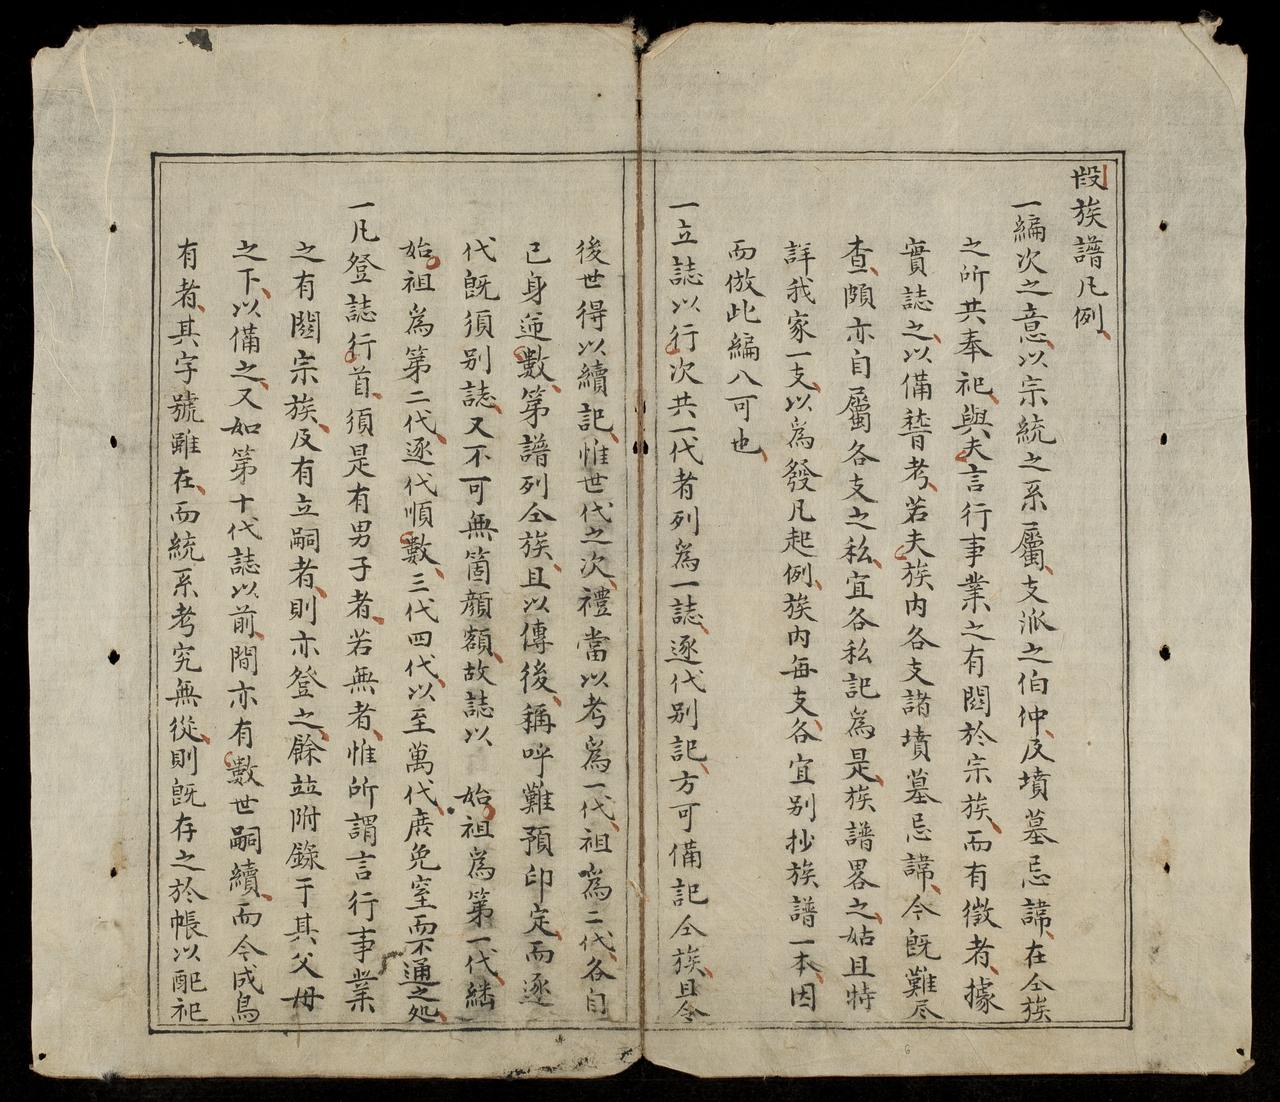 段族譜凡例
一編次之意以宗統之系屬支派之伯仲及墳墓忌諱在仝族
之所共奉祀與夫言行事業之有関於宗族而有徵者據
實誌之以備稽考若夫族内各支諸墳墓忌諱今既難尽
查頗亦自屬各支之私宜各私記為是族譜畧之姑且特
詳我家一支以為發凡起例族内每支各宜别抄族譜一本因
而倣此編入可也
一立誌以行次共一代者列為一誌逐代别記方可備記仝族且令
後世得以續記惟世代之次禮當以考為一代祖為二代各自
已身逆數第譜列仝族且以傳後稱呼難預印定而逐
代既須别誌又不可無箇顔額故誌以 始祖為第一代継
始祖為第二代逐代順數三代四代以至萬代庶免窒而不通之処
一凡登誌行首須是有男子者若無者惟所謂言行事業
之有関宗族及有立嗣者則亦登之餘並附錄于其父母
之下以備之又如第十代誌以前間亦有數世嗣續而今成烏
有者其字號雖在而統系考究無從則既存之於帳以配祀